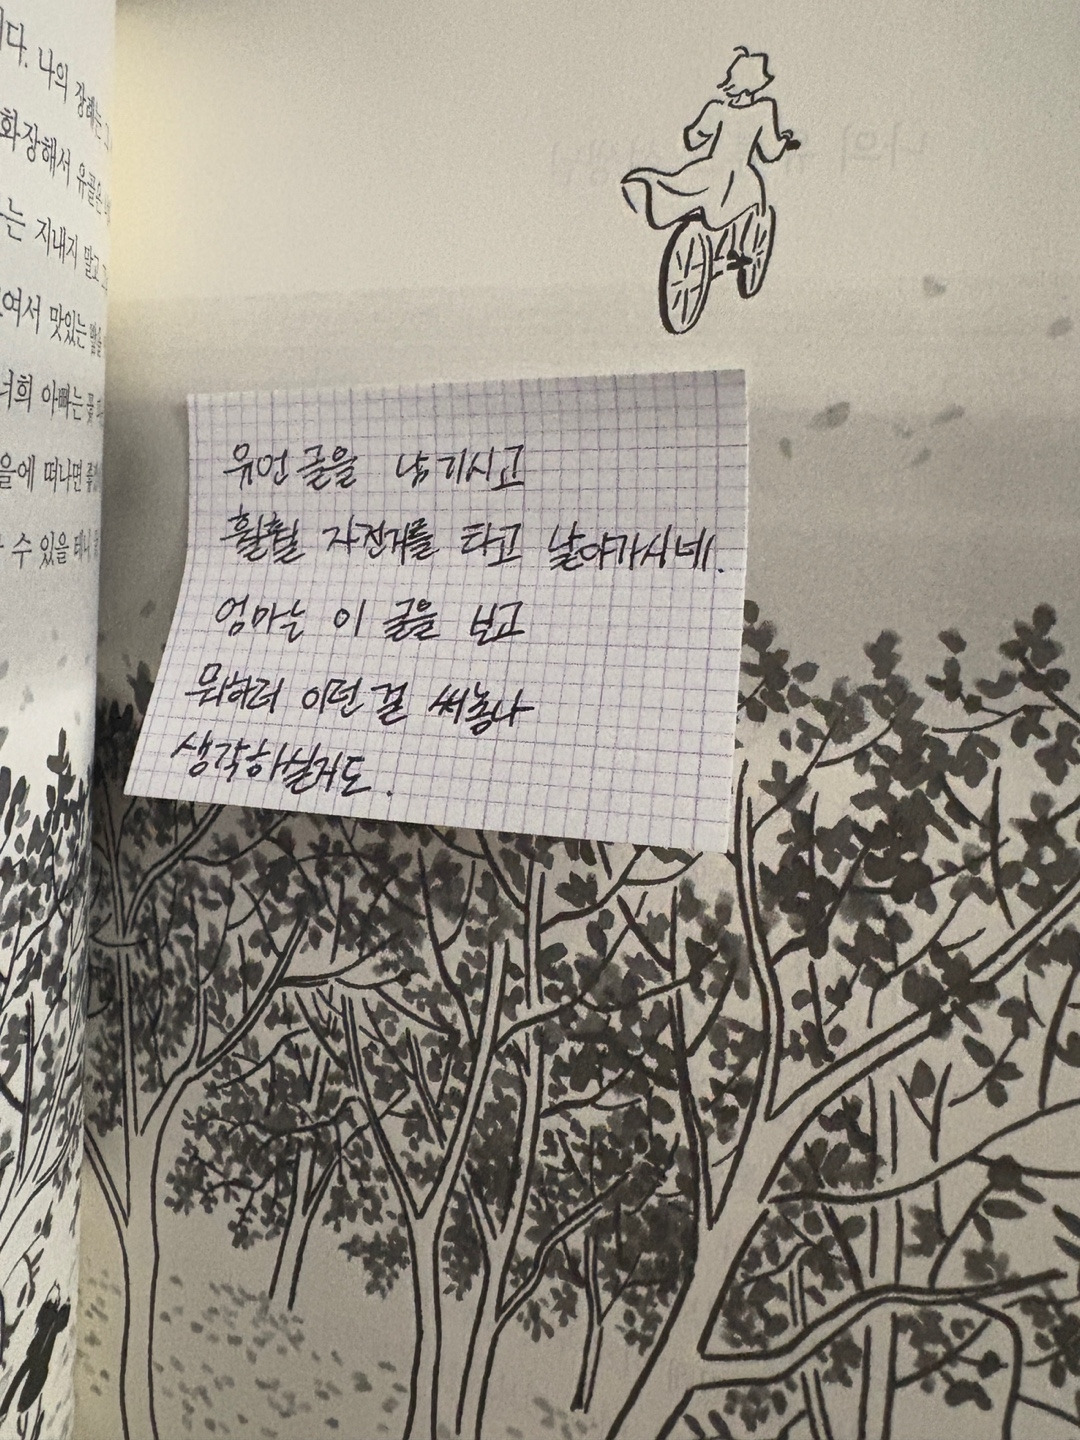 다. 나의 장례는
화장해서 유골은
는 지내지 말고
여서 맛있는 밥을
너희 아빠는 꽃
을에 떠나면 좋
수 있을 테니
유언 글을 남기시고
훨훨 자전거를 타고 날아가시네.
엄마는 이 글을 보고
뭐하러 이런 걸 써놓나
생각하실거도.